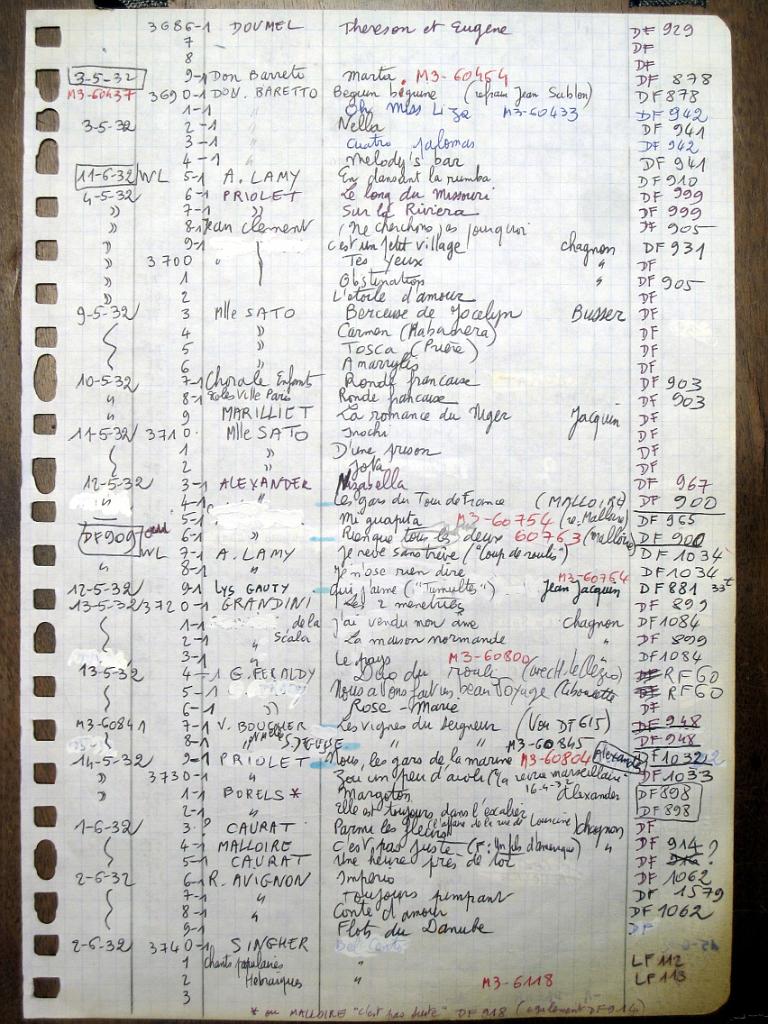 3686-1 DOUMEL Thereson et Eugene DF 929
7 DF
8 DF
3-5-32 9-1 Don Barreto Marta. M3-60454 DF 878
M3-60437 3690-1 DON. BARETTO Beguin beguine (refrain Jean Sablon) DF 878
1-1 " Oh, Miss Liza M3-60433 DF 942
3-5-32 2-1 " Nella DF 941
3-1 " Cuatro palomas DF 942
4-1 " Melody's bar DF 941
11-6-32 WL 5-1 A. LAMY En dansant la rumba DF 910
4-5-32 6-1 PRIOLET Le long du Missouri DF 999
" 7-1 " Sur la Riviera DF 999
" 8-1 Jean Clement Ne cherchons pas pourquoi DF 905
" 9-1 c'est un petit village chagnon DF 931
" 3700 " Tes yeux " DF
" 1 Obstination DF 905
" 2 L'etoile d'amour DF
9-5-32 3 Mlle SATO Berceuse de Jocelyn Busser DF
4 " Carmen (Habanera) DF
5 " Tosca (Priere) DF
6 " Amaryllis DF
10-5-32 7-1 Chorale Enfants Ronde francaise DF 903
" 8-1 Ecoles Ville Paris Ronde francaise DF 903
" 9 MARILLIET La romance du Niger Jacquin DF
11-5-32 3710 Mlle SATO Inochi DF
1 " D'une prison DF
2 " Jota DF
12-5-32 3-1 ALEXANDER Nisabella DF 967
" 4-1 " Les gars du Tour de France (MALLOIRE) DF 900
5-1 Mi guapita M3-60754 (re. Malloire) DF 965
DF 900 6-1 " Rien que tous les deux 60763 (Malloire) DF 900
WL 7-1 A. LAMY Je reve sans treve ("coup de roulis") DF 1034
" 8-1 " Je n'ose rien dire DF 1034
12-5-32 9-1 LYS GAUTY qui j'aime ("Tumultes") M3-60764 Jean Jacquin DF 881 33t
13-5-32 3720-1 GRANDINI Les 2 menetriers DF 899
1-1 de la j'ai vendu mon ame chagnon DF 1084
2-1 " Scala La maison normande " DF 899
3-1 " Le pays M3-60800 DF 1084
13-5-32 4-1 G. FERALDY Duo du mouli RF 60
5-1 Nous avons fait un beau voyage (Ciboulette RF 60
6-1 " Rose-Marie
M3-60841 7-1 V. BOUGNER Les vignes du seigneur (Voir DF 615) DF 948
8-1 " " M3-60845 DF 948
14-5-32 9-1 PRIOLET Nous, les gars de la marine M3-60804 Alexander DF 1032
" 3730-1 " Zou un peu d'aioli ("la revue marseillaise" DF 1033
" 1-1 BORELS * Margoton 16-4-32 Alexander DF 898
2-1 " Elle est toujours dans l'escalier DF 898
1-6-32 3-? CAURAT Parmi les fleurs (l'affaire de la rue de Lourcine) chagnon DF
4-1 MALLOIRE C'est pas juste (F: Un fils d'amerique) " DF 914
5-1 CAURAT Une heure pres de toi DF ?
2-6-32 6-1 R. AVIGNON Imperio DF 1062
7-1 " Toujours pimpant DF 1579
8-1 " Conte d'amour DF 1062
9-1 Flots du Danube DF
2-6-32 3740-1 SINGHER Bel Canto
1 Chants populaires " LF 112
2 Hebraiques " M3-6118 LF 113
3
* ou MALLOIRE "c'est pas juste" DF 918 (egalement DF 914)